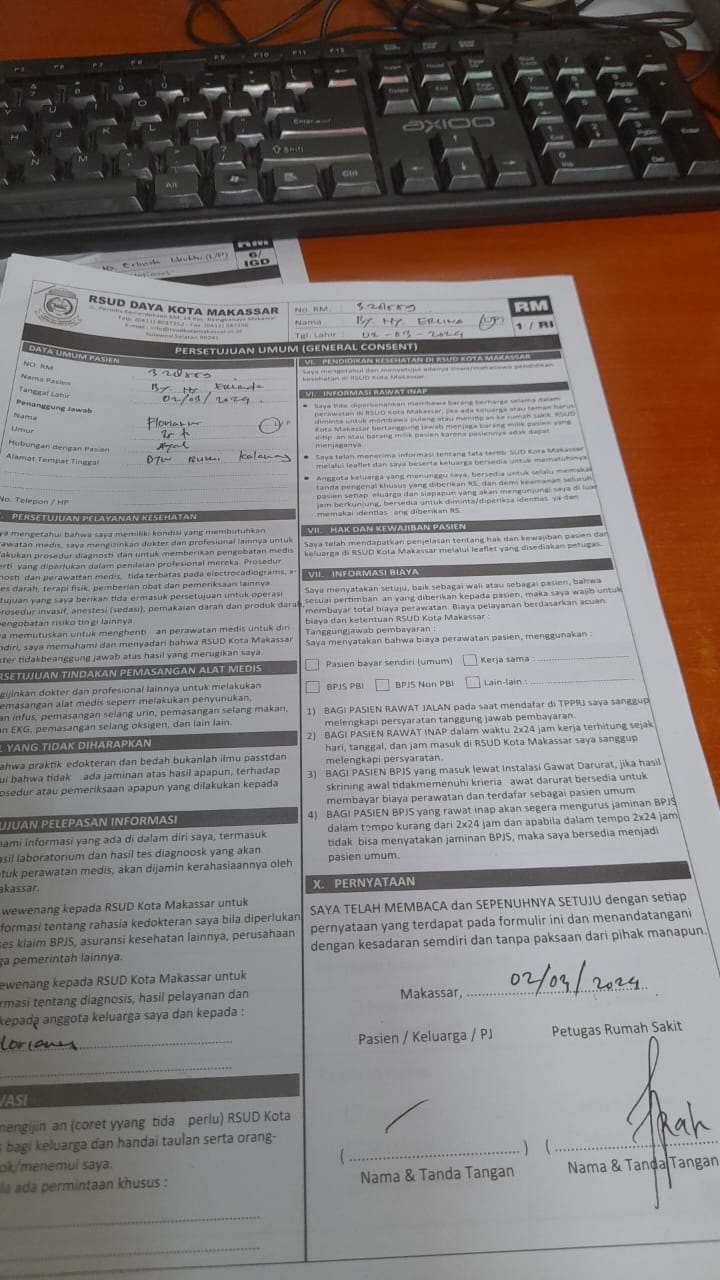 AXIOO
Enter
Shift
Alt
Ctrl
RM
6/
IGD
RSUD DAYA KOTA MAKASSAR
No. RM.
Nama By. Ny
Tgl. Lahir 02-03-2024
RM
1 / RI
PERSETUJUAN UMUM (GENERAL CONSENT)
DATA UMUM PASIEN
NO. RM
Nama Pasien By. Ny
Tanggal Lahir 02/03/2024
Penanggung Jawab
Nama
Umur
Hubungan dengan Pasien Ayah
Alamat Tempat Tinggal
No. Telepon / HP
PERSETUJUAN PELAYANAN KESEHATAN
ya mengetahui bahwa saya memiliki kondisi yang membutuhkan
awatan medis, saya mengizinkan dokter dan profesional lainnya untuk
lakukan prosedur diagnosti dan untuk memberikan pengobatan medis
erti yang diperlukan dalam penilaian profesional mereka. Prosedur
nosti dan perawattan medis, tida terbatas pada electrocadiograms, x-
es darah, terapi fisik, pemberian obat dan pemeriksaan lainnya.
tujuan yang saya berikan tida ermasuk persetujuan untuk operasi
prosedur invasif, anestesi (sedasi), pemakaian darah dan produk darah
engobatan risiko tin gi lainnya.
a memutuskan untuk menghenti an perawatan medis untuk diri
ndiri, saya memahami dan menyadari bahwa RSUD Kota Makassar
kter tidakbeanggung jawab atas hasil yang merugikan saya.
RSETUJUAN TINDAKAN PEMASANGAN ALAT MEDIS
gijinkan dokter dan profesional lainnya untuk melakukan
emasangan alat medis seperr melakukan penyunukan,
an infus, pemasangan selang urin, pemasangan selang makan,
n EKG, pemasangan selang oksigen, dan lain lain.
L YANG TIDAK DIHARAPKAN
ahwa praktik edokteran dan bedah bukanlah ilmu passtdan
ui bahwa tidak ada jaminan atas hasil apapun, terhadap
osedur atau pemeriksaan apapun yang dilakukan kepada
UJUAN PELEPASAN INFORMASI
ami informasi yang ada di dalam diri saya, termasuk
asil laboratorium dan hasil tes diagnoosk yang akan
tuk perawatan medis, akan dijamin kerahasiaannya oleh
akassar.
wewenang kepada RSUD Kota Makassar untuk
formasi tentang rahasia kedokteran saya bila diperlukan
ses klaim BPJS, asuransi kesehatan lainnya, perusahaan
ga pemerintah lainnya.
ewenang kepada RSUD Kota Makassar untuk
rmasi tentang diagnosis, hasil pelayanan dan
kepada anggota keluarga saya dan kepada :
VASI
mengijin an (coret yyang tida perlu) RSUD Kota
s bagi keluarga dan handai taulan serta orang-
ok/menemui saya.
la ada permintaan khusus :
VI. PENDIDIKAN KESEHATAN DI RSUD KOTA MAKASSAR
Saya mengetahui dan menyetujui adanya siswa/mahasiswa pendidikan
kesehatan di RSUD Kota Makassar.
VI. INFORMASI RAWAT INAP
Saya tida diperkenankan membawa barang berharga selama dalam
perawatan di RSUD Kota Makassar, jika ada keluarga atau teman harus
diminta untuk membawa pulang atau menitip an ke rumah sakit. RSUD
Kota Makassar bertanggung jawab menjaga barang milik pasien yang
ditip an atau barang milik pasien karena pasiennya adak dapat
menjaganya.
Saya telah menerima informasi tentang tata tertib SUD Kota Makassar
melalui leaflet dan saya beserta keluarga bersedia untuk mematuhinya
Anggota keluarga yang menunggu saya, bersedia untuk selalu memakai
tanda pengenal khusus yang diberikan RS, dan demi keamanan seluruh
pasien setiap eluarga dan siapapun yang akan mengunjungi saya di luar
jam berkunjung, bersedia untuk diminta/diperiksa identias ya dan
memakai identias ang diberikan RS.
VII. HAK DAN KEWAJIBAN PASIEN
Saya telah mendapatkan penjelasan tentang hak dan kewajiban pasien dan
keluarga di RSUD Kota Makassar melalui leaflet yang disediakan petugas.
VII. INFORMASI BIAYA
Saya menyatakan setuju, baik sebagai wali atau sebagai pasien, bahwa
sesuai pertimban an yang diberikan kepada pasien, maka saya wajib untuk
membayar total biaya perawatan. Biaya pelayanan berdasarkan acuan
biaya dan ketentuan RSUD Kota Makassar :
Tanggungjawab pembayaran :
Saya menyatakan bahwa biaya perawatan pasien, menggunakan :
Pasien bayar sendiri (umum) Kerja sama :
BPJS PBI BPJS Non PBI Lain-lain :
1) BAGI PASIEN RAWAT JALAN pada saat mendafar di TPPRJ saya sanggup
melengkapi persyaratan tanggung jawab pembayaran.
2) BAGI PASIEN RAWAT INAP dalam waktu 2x24 jam kerja terhitung sejak
hari, tanggal, dan jam masuk di RSUD Kota Makassar saya sanggup
melengkapi persyaratan.
3) BAGI PASIEN BPJS yang masuk lewat Instalasi Gawat Darurat, jika hasil
skrining awal tidakmemenuhi krieria awat darurat bersedia untuk
membayar biaya perawatan dan terdafar sebagai pasien umum
4) BAGI PASIEN BPJS yang rawat inap akan segera mengurus jaminan BPJS
dalam tempo kurang dari 2x24 jam dan apabila dalam tempo 2x24 jam
tidak bisa menyatakan jaminan BPJS, maka saya bersedia menjadi
pasien umum.
X. PERNYATAAN
SAYA TELAH MEMBACA dan SEPENUHNYA SETUJU dengan setiap
pernyataan yang terdapat pada formulir ini dan menandatangani
dengan kesadaran semdiri dan tanpa paksaan dari pihak manapun.
Makassar, 02/03/2024
Pasien / Keluarga / PJ Petugas Rumah Sakit
(..............................) (..............................
Nama & Tanda Tangan Nama & Tanda Tangan